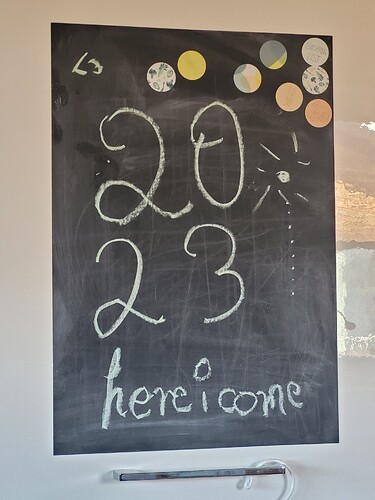 <3
20
23
here i come